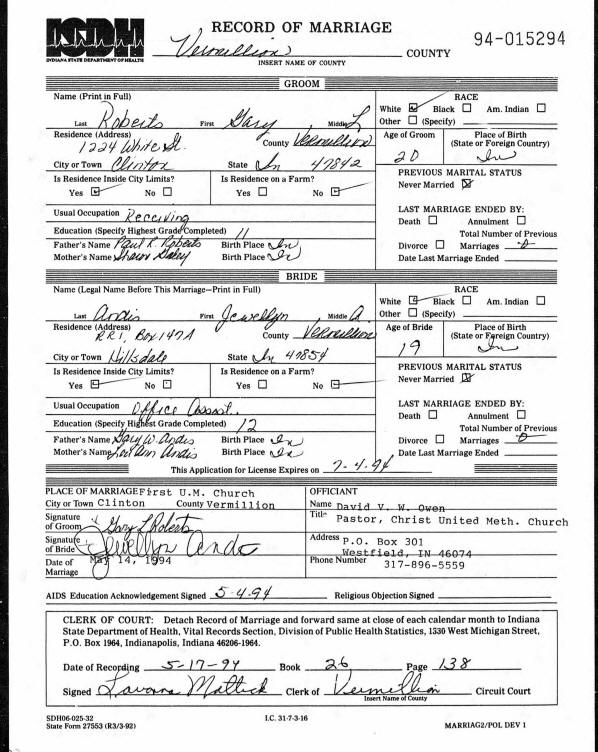 ISDH
INDIANA STATE DEPARTMENT OF HEALTH
RECORD OF MARRIAGE
94-015294
Vermillion COUNTY
INSERT NAME OF COUNTY
GROOM
Name (Print in Full)
Last Roberts First Gary Middle L
RACE
White ☑ Black ☐ Am. Indian ☐
Other ☐ (Specify)
Residence (Address)
1224 White St. County Vermillion
City or Town Clinton State In 47842
Age of Groom 20
Place of Birth (State or Foreign Country) In
Is Residence Inside City Limits? Yes ☑ No ☐
Is Residence on a Farm? Yes ☐ No ☑
PREVIOUS MARITAL STATUS
Never Married ☒
Usual Occupation Receiving
Education (Specify Highest Grade Completed) 11
Father's Name Paul R. Roberts Birth Place In
Mother's Name Sharon Birth Place In
LAST MARRIAGE ENDED BY:
Death ☐ Annulment ☐
Total Number of Previous
Divorce ☐ Marriages 0
Date Last Marriage Ended
BRIDE
Name (Legal Name Before This Marriage—Print in Full)
Last Andis First Jewellyn Middle A.
RACE
White ☑ Black ☐ Am. Indian ☐
Other ☐ (Specify)
Residence (Address)
RR1, Box 147A County Vermillion
City or Town Hillsdale State In 47854
Age of Bride 19
Place of Birth (State or Foreign Country) In
Is Residence Inside City Limits? Yes ☑ No ☐
Is Residence on a Farm? Yes ☐ No ☑
PREVIOUS MARITAL STATUS
Never Married ☒
Usual Occupation Office Assist.
Education (Specify Highest Grade Completed) 12
Father's Name Gary W. Andis Birth Place In
Mother's Name Lori Ann Andis Birth Place In
LAST MARRIAGE ENDED BY:
Death ☐ Annulment ☐
Total Number of Previous
Divorce ☐ Marriages 0
Date Last Marriage Ended
This Application for License Expires on 7-4-94
PLACE OF MARRIAGE First U.M. Church
City or Town Clinton County Vermillion
Signature of Groom Gary L Roberts
Signature of Bride Jewellyn Andis
Date of Marriage May 14, 1994
OFFICIANT
Name David V. W. Owen
Title Pastor, Christ United Meth. Church
Address P.O. Box 301
Westfield, IN 46074
Phone Number 317-896-5559
AIDS Education Acknowledgement Signed 5-4-94 Religious Objection Signed
CLERK OF COURT: Detach Record of Marriage and forward same at close of each calendar month to Indiana
State Department of Health, Vital Records Section, Division of Public Health Statistics, 1330 West Michigan Street,
P.O. Box 1964, Indianapolis, Indiana 46206-1964.
Date of Recording 5-17-94 Book 26 Page 138
Signed Lavonna Mattick Clerk of Vermillion Circuit Court
Insert Name of County
SDH06-025-32
State Form 27553 (R3/3-92)
I.C. 31-7-3-16
MARRIAG2/POL DEV 1